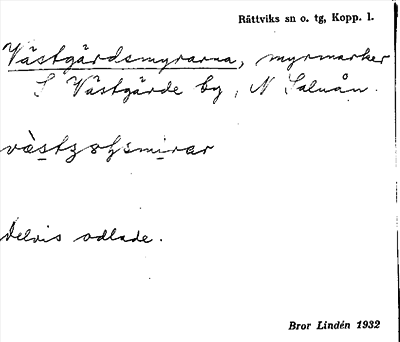 Rättviks sn o. tg, Kopp. l.
Västgärdsmyrarna, myrmarker
S Västgärde by, N Saluån.
delvis odlade.
Bror Lindén 1932